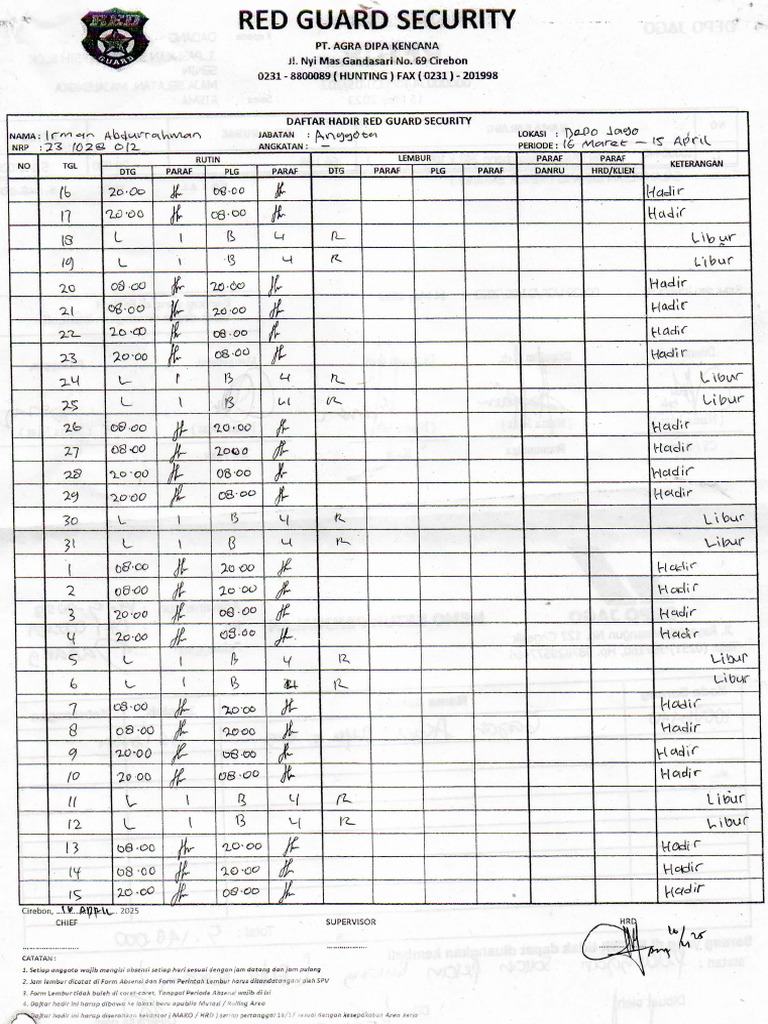 RED GUARD SECURITY
PT. AGRA DIPA KENCANA
Jl. Nyi Mas Gandasari No. 69 Cirebon
0231 - 8800089 ( HUNTING ) FAX ( 0231 ) - 201998
RED
GUARD
DAFTAR HADIR RED GUARD SECURITY
NAMA : Irman Abdurrahman JABATAN : Anggota LOKASI : Depo Jago
NRP : 23 1028 012 ANGKATAN : - PERIODE : 16 Maret - 15 April
NO TGL RUTIN LEMBUR PARAF PARAF KETERANGAN
DTG PARAF PLG PARAF DTG PARAF PLG PARAF DANRU HRD/KLIEN
16 20.00 08.00 Hadir
17 20.00 08.00 Hadir
18 L I B U R Libur
19 L I B U R Libur
20 08.00 20.00 Hadir
21 08.00 20.00 Hadir
22 20.00 08.00 Hadir
23 20.00 08.00 Hadir
24 L I B U R Libur
25 L I B U R Libur
26 08.00 20.00 Hadir
27 08.00 2000 Hadir
28 20.00 08.00 Hadir
29 20.00 08.00 Hadir
30 L I B U R Libur
31 L I B U R Libur
1 08.00 20.00 Hadir
2 08.00 20.00 Hadir
3 20.00 08.00 Hadir
4 20.00 08.00 Hadir
5 L I B U R Libur
6 L I B U R Libur
7 08.00 20.00 Hadir
8 08.00 20.00 Hadir
9 20.00 08.00 Hadir
10 20.00 08.00 Hadir
11 L I B U R Libur
12 L I B U R Libur
13 08.00 20.00 Hadir
14 08.00 20.00 Hadir
15 20.00 08.00 Hadir
Cirebon, 16 APRIL 2025
CHIEF SUPERVISOR HRD
CATATAN :
1. Setiap anggota wajib mengisi absensi setiap hari sesuai dengan jam datang dan jam pulang
2. Jam lembur dicatat di Form Absensi dan Form Perintah Lembur harus ditandatangani oleh SPV
3. Form Lembur tidak boleh di coret-coret, Tanggal Periode Absensi wajib di isi
4. Daftar hadir ini harap dibawa ke lokasi baru apabila Mutasi / Rolling Area